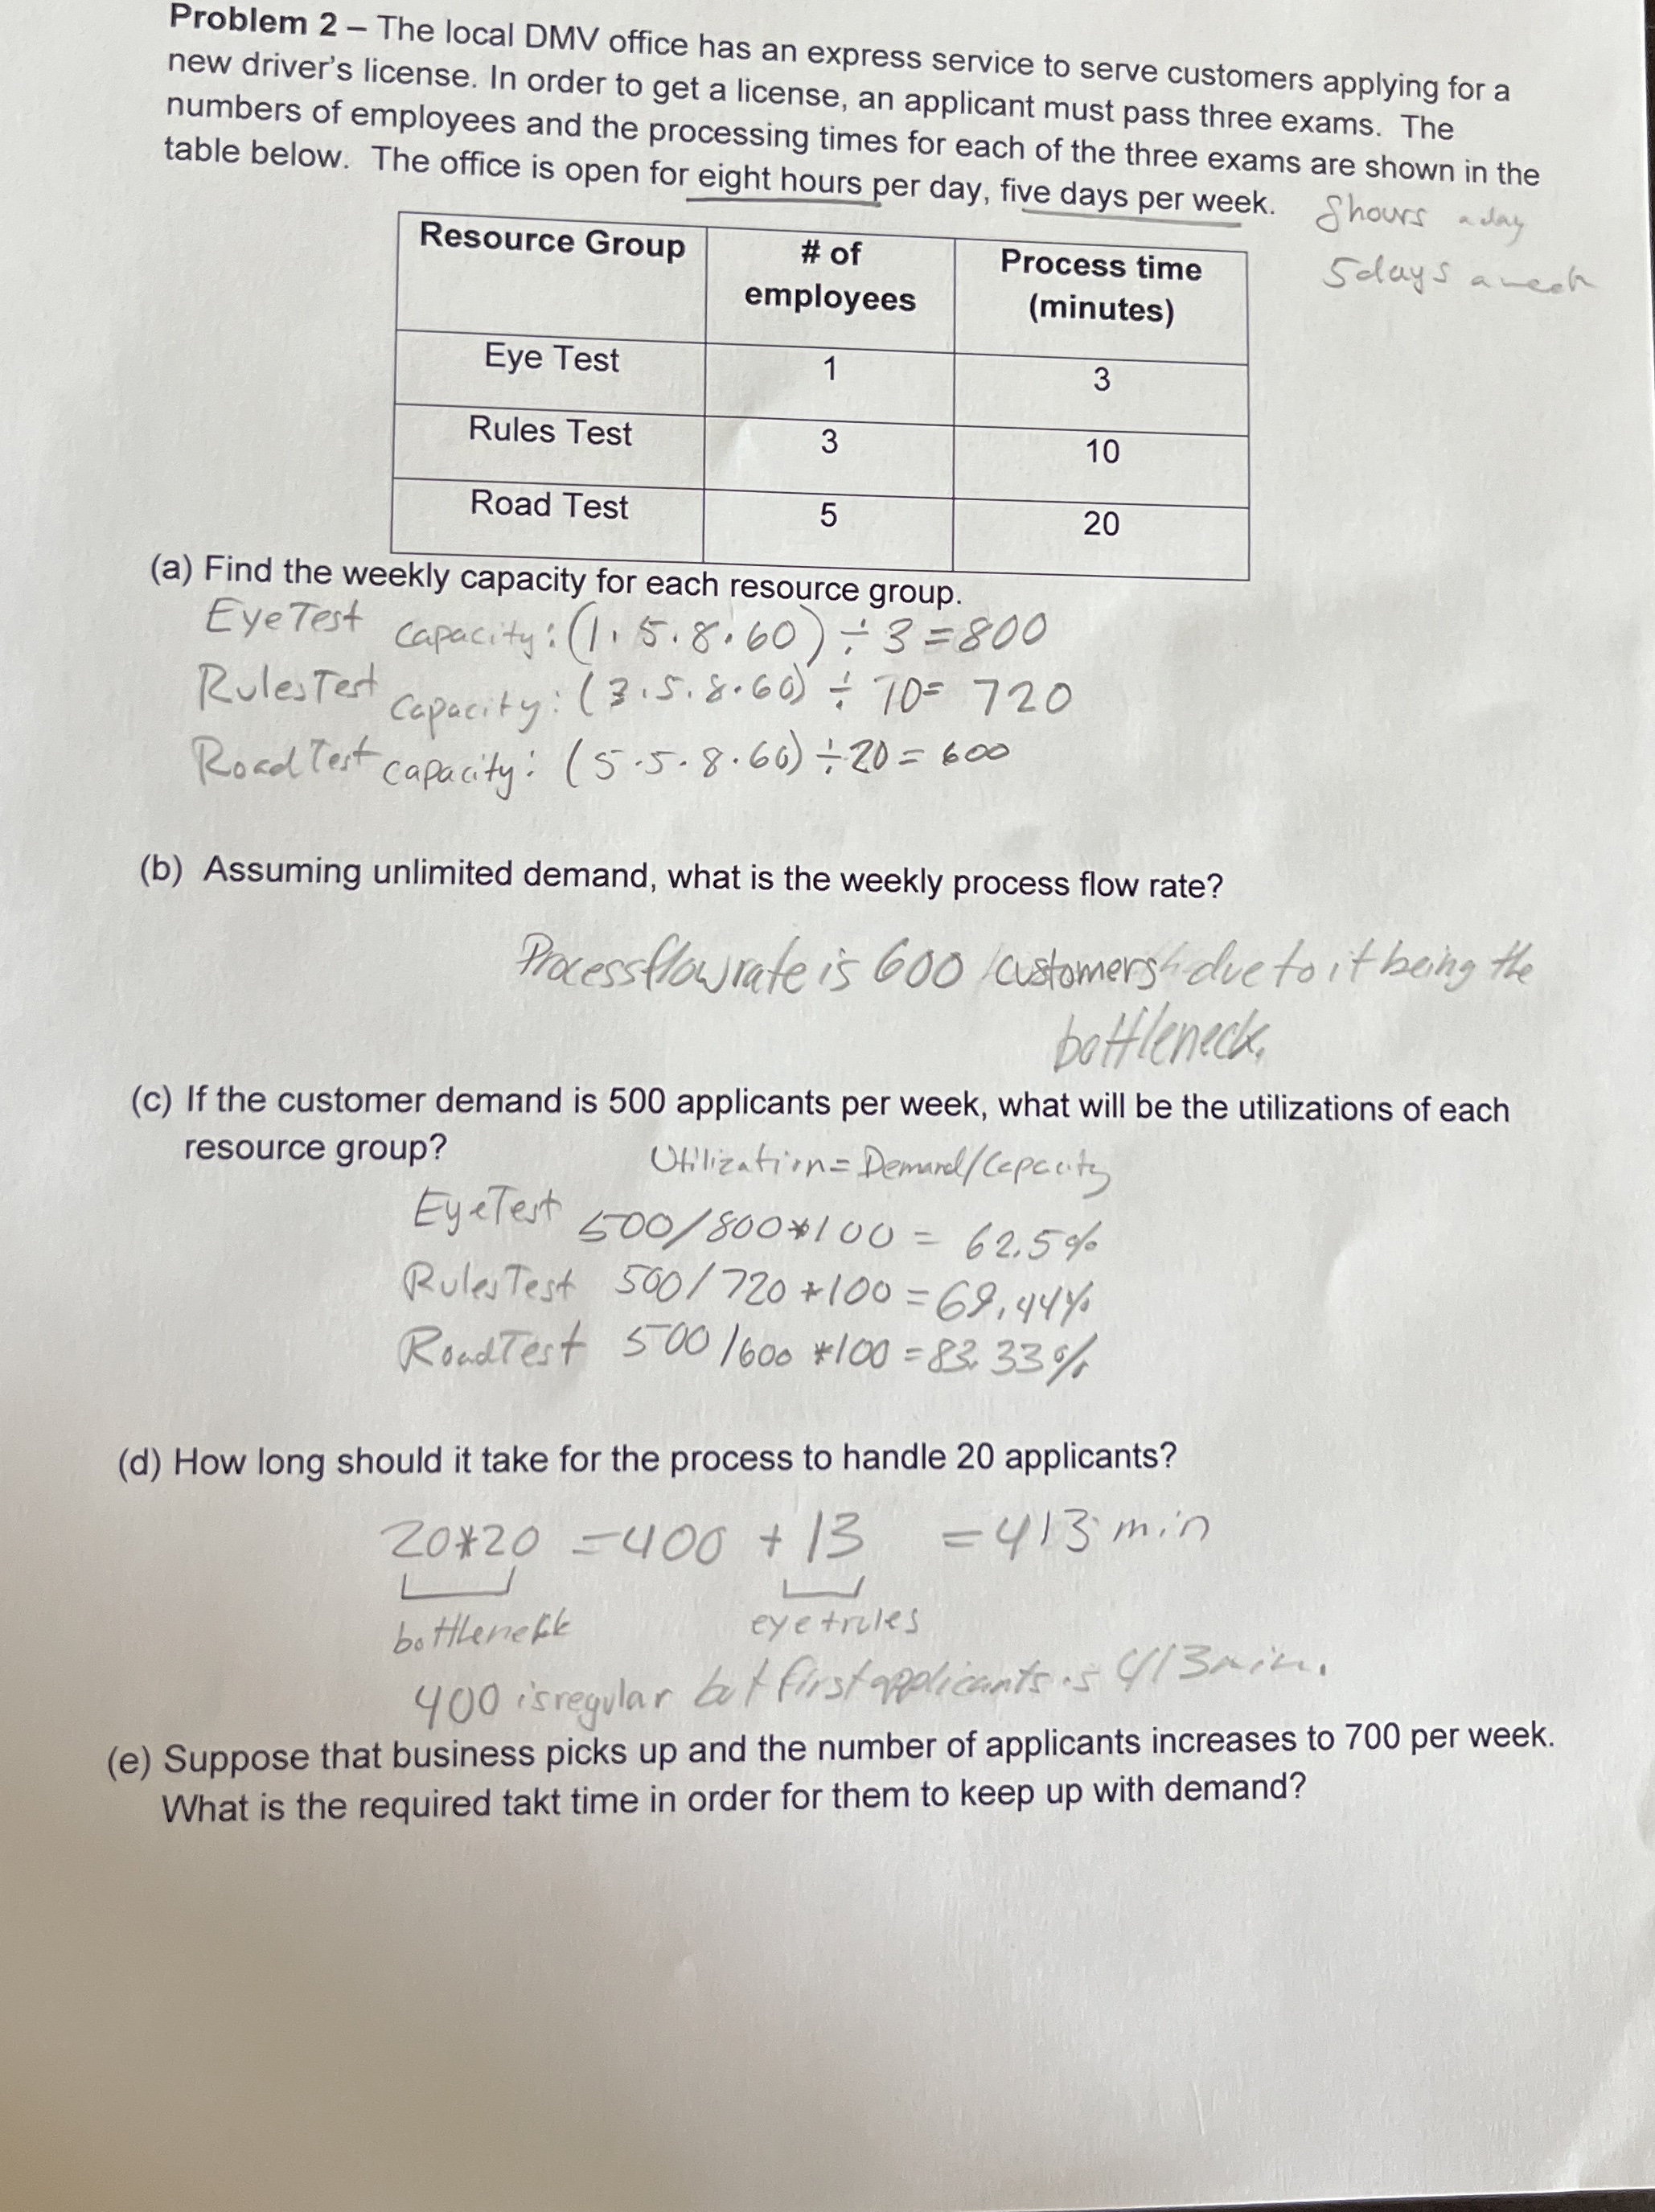 Problem 2 – The local DMV office has an express service to serve customers applying for a
new driver's license. In order to get a license, an applicant must pass three exams. The
numbers of employees and the processing times for each of the three exams are shown in the
table below. The office is open for eight hours per day, five days per week.
8 hours a day
5 days a week
Resource Group # of employees Process time (minutes)
Eye Test 1 3
Rules Test 3 10
Road Test 5 20
(a) Find the weekly capacity for each resource group.
Eye Test capacity: (1 · 5 · 8 · 60) ÷ 3 = 800
Rules Test capacity: (3 · 5 · 8 · 60) ÷ 10 = 720
Road Test capacity: (5 · 5 · 8 · 60) ÷ 20 = 600
(b) Assuming unlimited demand, what is the weekly process flow rate?
Process flow rate is 600 customers due to it being the
bottleneck.
(c) If the customer demand is 500 applicants per week, what will be the utilizations of each
resource group?
Utilization = Demand/Capacity
Eye Test 500/800*100 = 62.5%
Rules Test 500/720*100 = 69.44%
Road Test 500/600*100 = 83.33%
(d) How long should it take for the process to handle 20 applicants?
20*20 = 400 + 13 = 413 min
bottleneck eye + rules
400 is regular but first applicants is 413 min.
(e) Suppose that business picks up and the number of applicants increases to 700 per week.
What is the required takt time in order for them to keep up with demand?